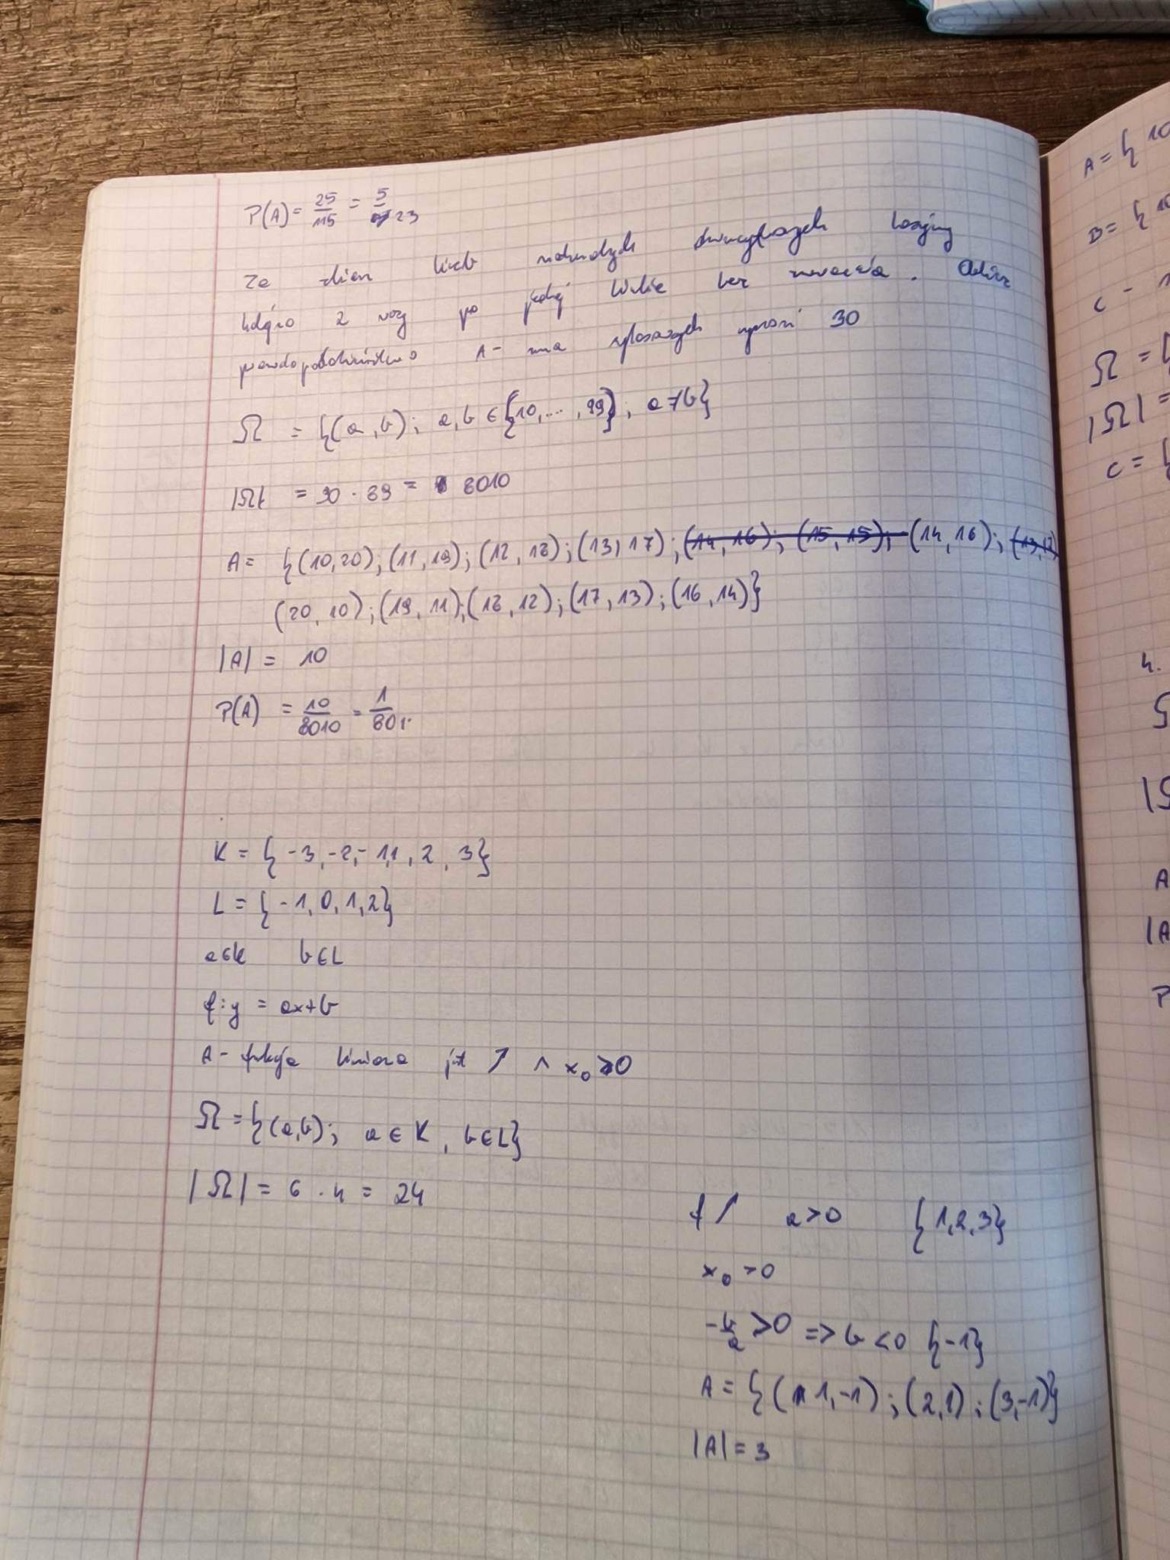 P(A) = 25/115 = 5/23
Ze zbioru liczb naturalnych dwucyfrowych losujemy
kolejno 2 razy po jednej liczbie bez zwracania. Oblicz
prawdopodobieństwo A- suma wylosowanych wynosi 30
Ω = {(a,b); a,b ∈ {10,...,99}, a≠b}
|Ω| = 90 · 89 = 8010
A = {(10,20);(11,19);(12,18);(13,17);(14,16);(15,15);(14,16);
(20,10);(19,11);(18,12);(17,13);(16,14)}
|A| = 10
P(A) = 10/8010 = 1/801
K = {-3,-2,-1,1,2,3}
L = {-1,0,1,2}
a∈K b∈L
f:y = ax+b
A- funkcja liniowa jest ↗ ∧ x₀>0
Ω = {(a,b); a ∈ K, b∈L}
|Ω| = 6 · 4 = 24
f ↗ a>0 {1,2,3}
x₀ >0
-b/a >0 => b <0 {-1}
A = {(1,-1);(2,1);(3,-1)}
|A| = 3
A = { 10
B = { 10
C -
Ω = {
|Ω| =
C = {
4.
A
|A
P